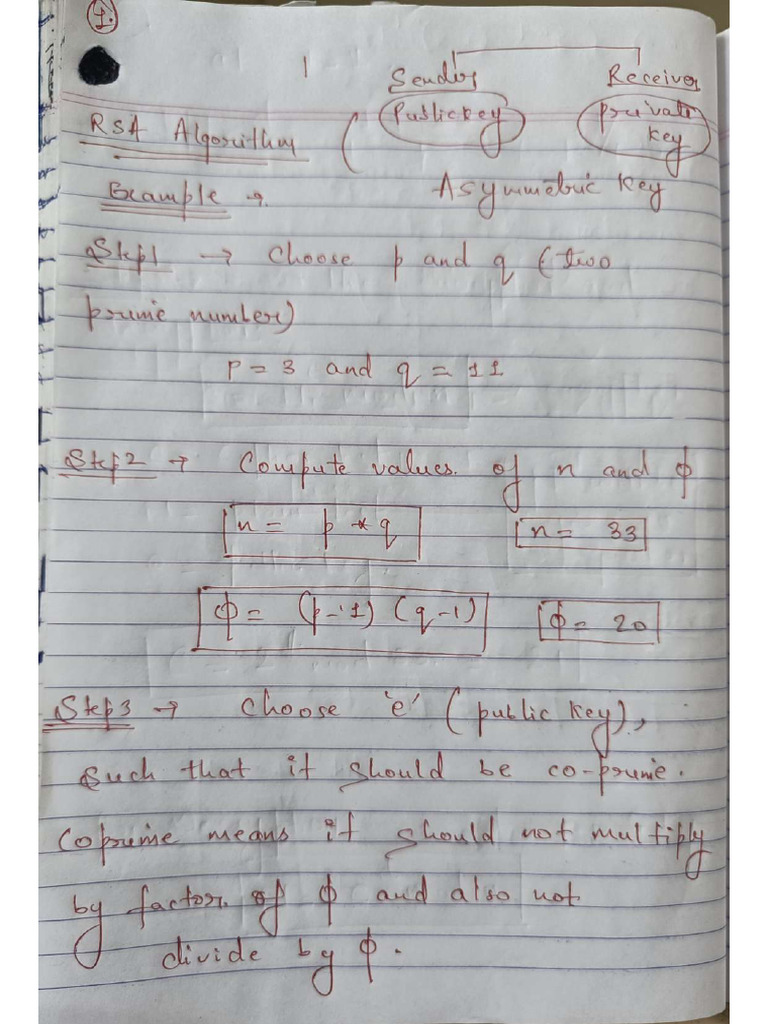 1.
1
Sender Receiver
Public key private
key
RSA Algorithm
Example →
Asymmetric Key
Step1 → Choose p and q (two
prime number)
P = 3 and q = 11
Step2 → Compute values. of n and ϕ
n = p * q n = 33
ϕ = (p-1) (q-1) ϕ = 20
Step3 → Choose 'e' (public key),
Such that it should be co-prime.
Coprime means it should not multiply
by factor. of ϕ and also not
divide by ϕ.